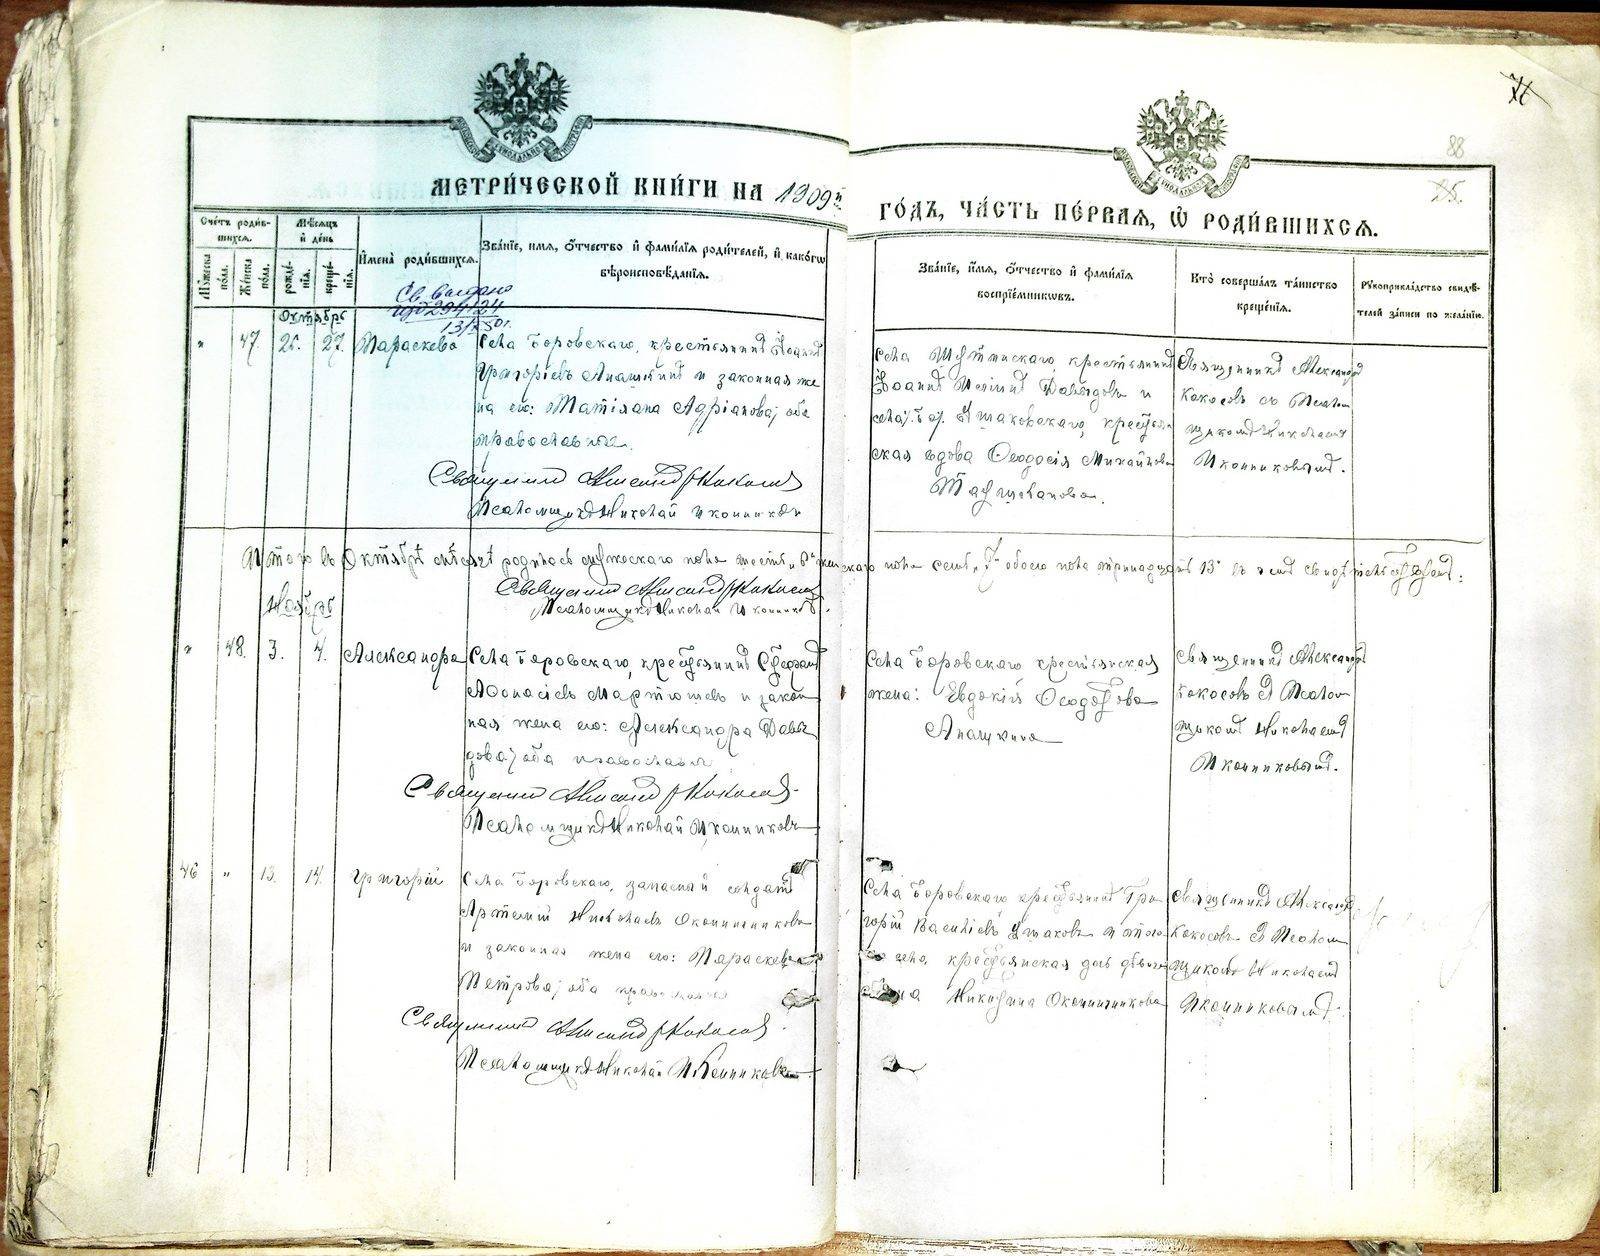 88
25.
МЕТРИ́ЧЕСКОЙ КНИ́ГИ НА 1909й
ГО́ДЪ, ЧА́СТЬ ПЕ́РВАЯ, Ѡ РОДИ́ВШИХСЯ.
Сче́тъ роди́в-
шихся.
Му́жеска по́ла.
Же́нска по́ла.
Мѣ́сяцъ
и҆ де́нь
рожде́-
нія.
креще́-
нія.
И҆мена̀ роди́вшихся.
Зва́ніе, и҆́мя, ѻ҆́тчество и҆ фами́лія роди́телей, и҆ како́гѡ
вѣроисповѣ́данія.
Зва́ніе, и҆́мя, ѻ҆́тчество и҆ фами́лія
воспрїе́мниковъ.
Кто̀ соверша́лъ та́инство
креще́нія.
Рꙋкоприкла́дство свидѣ́-
телей за́писи по жела́нію.
Св. выдано
294124
Октябрь
" 47. 25. 27. Параскева
Села Боровскаго, крестьянинъ Іоаннъ
Григоріевъ Анашкинъ и законная же
на его: Матіяна Адріанова, оба
православные.
Священникъ Александръ Кокосовъ
Псаломщикъ Николай Иконниковъ
Села крестьянинъ
Іоаннъ Давыдовъ и
Ушаковскаго, крестьян
ская вдова Ѳеодосія Михайлова
Священникъ Александръ
Кокосовъ съ Псалом
щикомъ Николаемъ
Иконниковымъ.
Итого въ Октябрѣ мѣсяцѣ родилось мужескаго пола шесть "6" женскаго пола семь "7" обоего пола тринадцать "13" въ чемъ свидѣтельствуемъ:
Священникъ Александръ Кокосовъ
Псаломщикъ Николай Иконниковъ.
Ноябрь
" 48. 3. 4. Александра
Села Боровскаго, крестьянинъ Стефанъ
Аѳонасіевъ Мартюшевъ и закон
ная жена его: Александра Давы
дова, оба православн
Священникъ Александръ Кокосовъ
Псаломщикъ Николай Иконниковъ
Села Боровскаго крестьянская
жена: Евдокія Ѳеодотова
Анашкина
Священникъ Александръ
Кокосовъ съ Псалом
щикомъ Николаемъ
Иконниковымъ.
46 " 13. 14. Григорій
Села Боровскаго, запасный солдатъ
Артемій Николаевъ Оконничникова
и законная жена его: Параскева
Петрова, оба православн
Священникъ Александръ Кокосовъ
Псаломщикъ Николай Иконниковъ
Села Боровскаго крестьянинъ Гри
горій Василіевъ Ушаковъ и того
села, крестьянская дочь дѣвица
Никитина Оконничникова
Священникъ Александръ
Кокосовъ съ Псалом
щикомъ Николаемъ
Иконниковымъ.